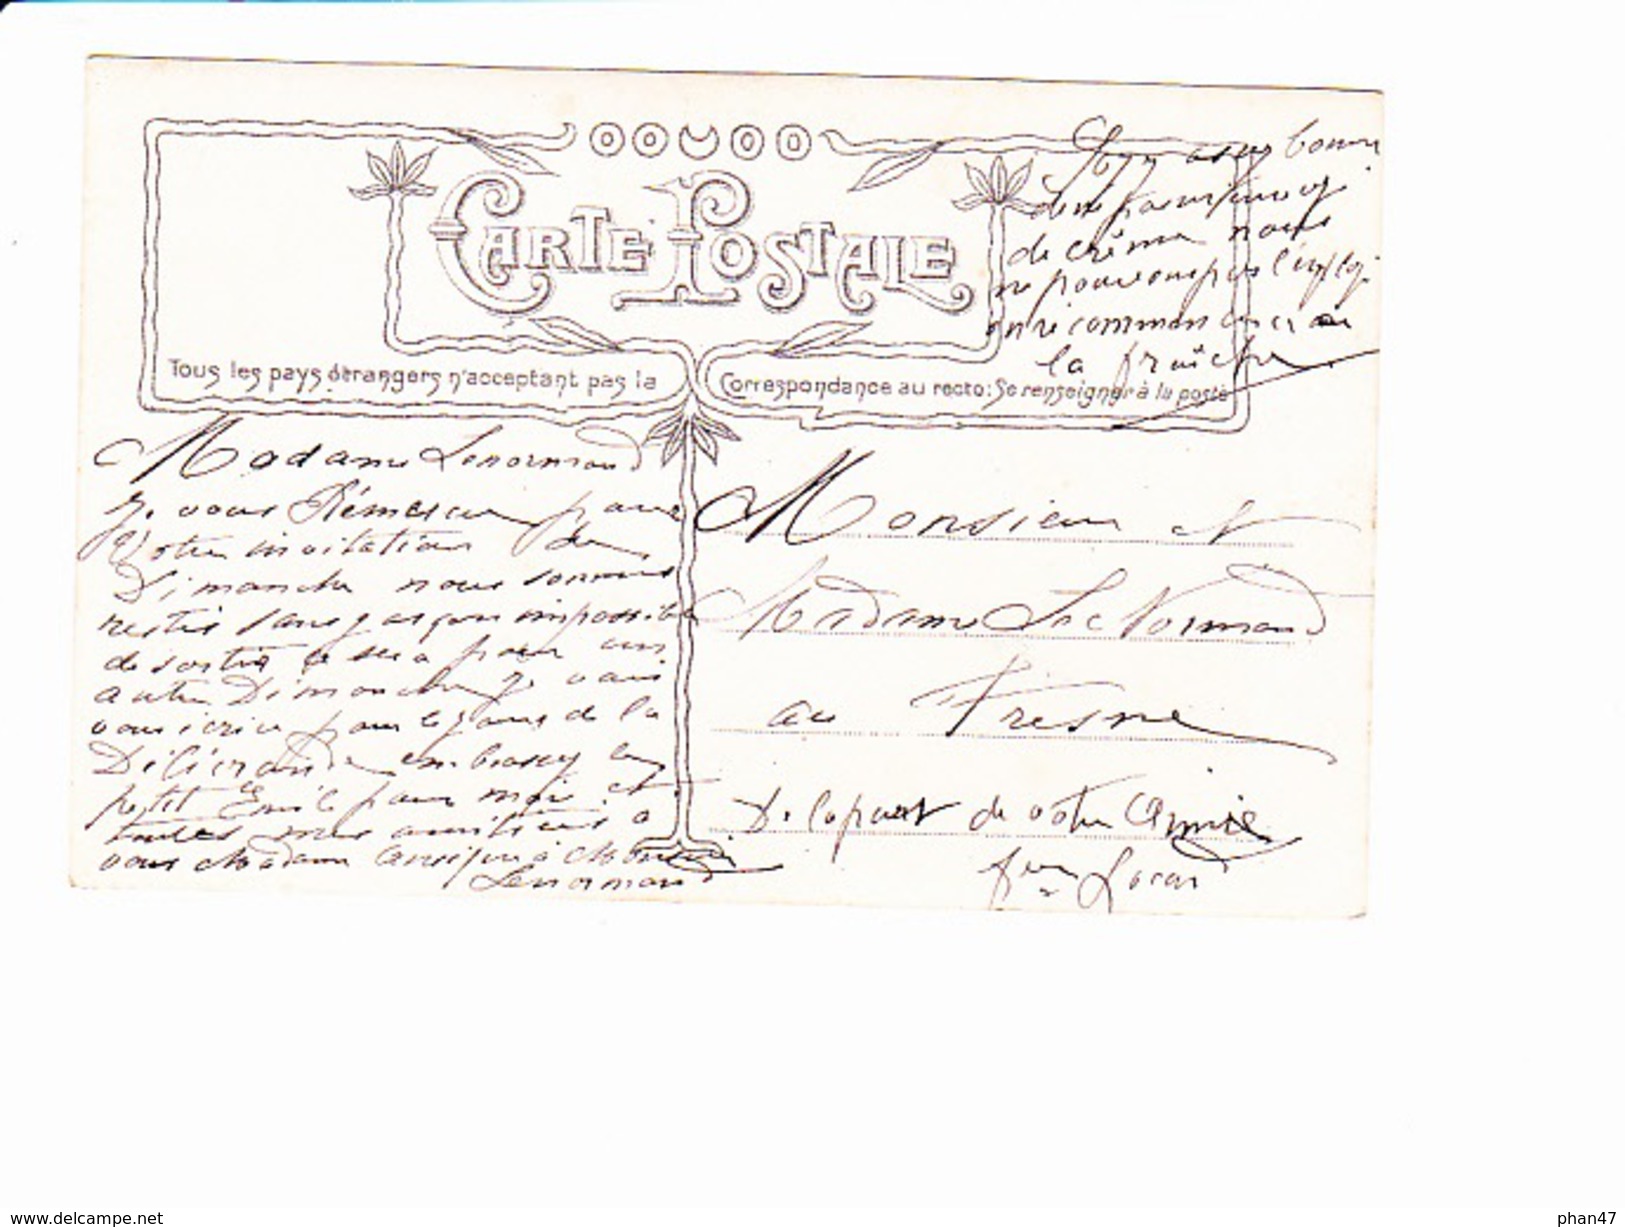 CARTE POSTALE
Tous les pays étrangers n'acceptant pas la Correspondance au recto: Se renseigner à la poste
Soyez assez bonne
de ne pas
de crême nous
ne pouvons pas l'
on recommencera a
la fraîche
Madame Lenormand
Je vous Rémercie pour
Votre invitation de
Dimanche nous sommes
restés sans garçon impossible
de sortir ce sera pour un
autre Dimanche je vais
vous écrire pour le jour de la
Délivrande embrassez le
petit Emile pour moi et
toutes mes amitiées a
vous Madame ainsi qu'à Monsieur
Lenormand
Monsieur et
Madame Le Normand
au Fresne
De la part de votre Amie
Locard
www.delcampe.net
phan47